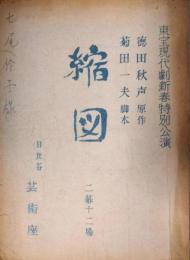 東宝現代劇新春特別公演
徳田秋声 原作
菊田一夫 脚本
縮図
二幕十二場
日比谷
芸術座